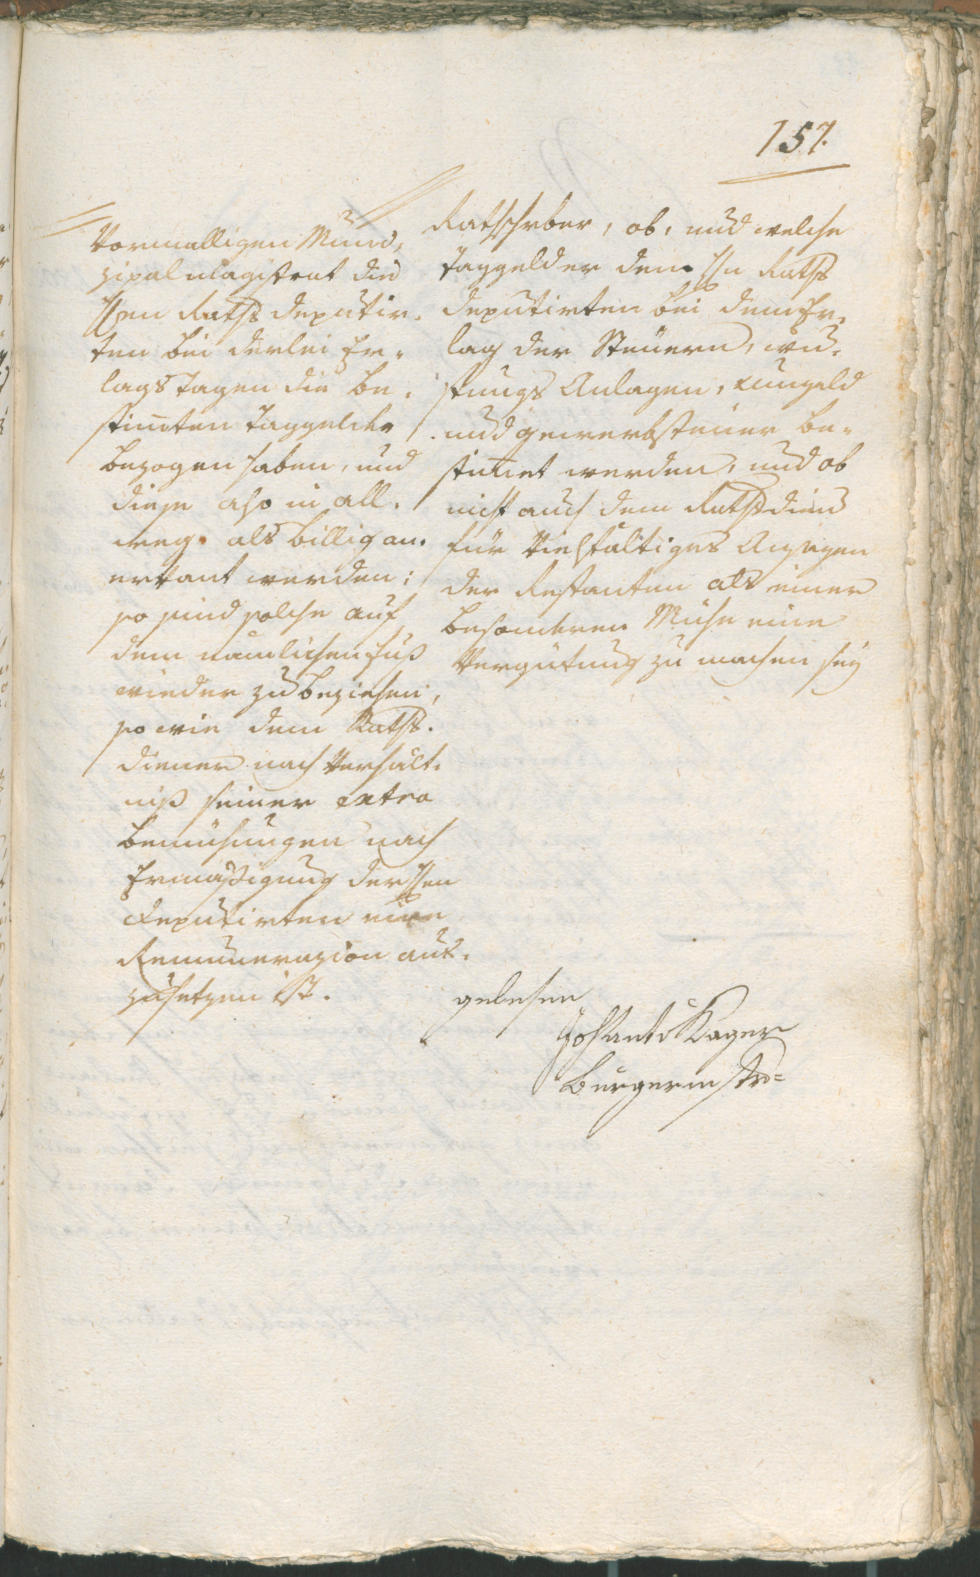 157.
Vormalligen Muni-
zipalmagistrat die
Hen Raths Deputir-
ten bei derlei Er-
lags Tagen die be-
stimten Taggelder
bezogen haben, und
diese also in all-
weg als billig an-
erkant werden;
so sind solche auf
dem nämlichen Fuß
wieder zu beziehen,
so wie dem Raths-
diener nach Verhält-
niß seiner extra
Bemühungen nach
Ermäßigung der Hen
Deputirten eine
Remunerazion aus-
zusetzen ist.
Rathschreiber, ob, und welche
Taggelder den Hn Raths
Deputirten bei dem Er-
lag der Steüern,
stungs Anlagen, Umgeld
und Gewerbsteüer be-
stimet werden, und ob
nicht auch dem Rathsdiener
für Vielfältiges Anzeigen
der Restanten als einer
besonderen Mühe eine
Vergütung zu machen sey
gelesen
Joh Anto Kager
Burgermstr=